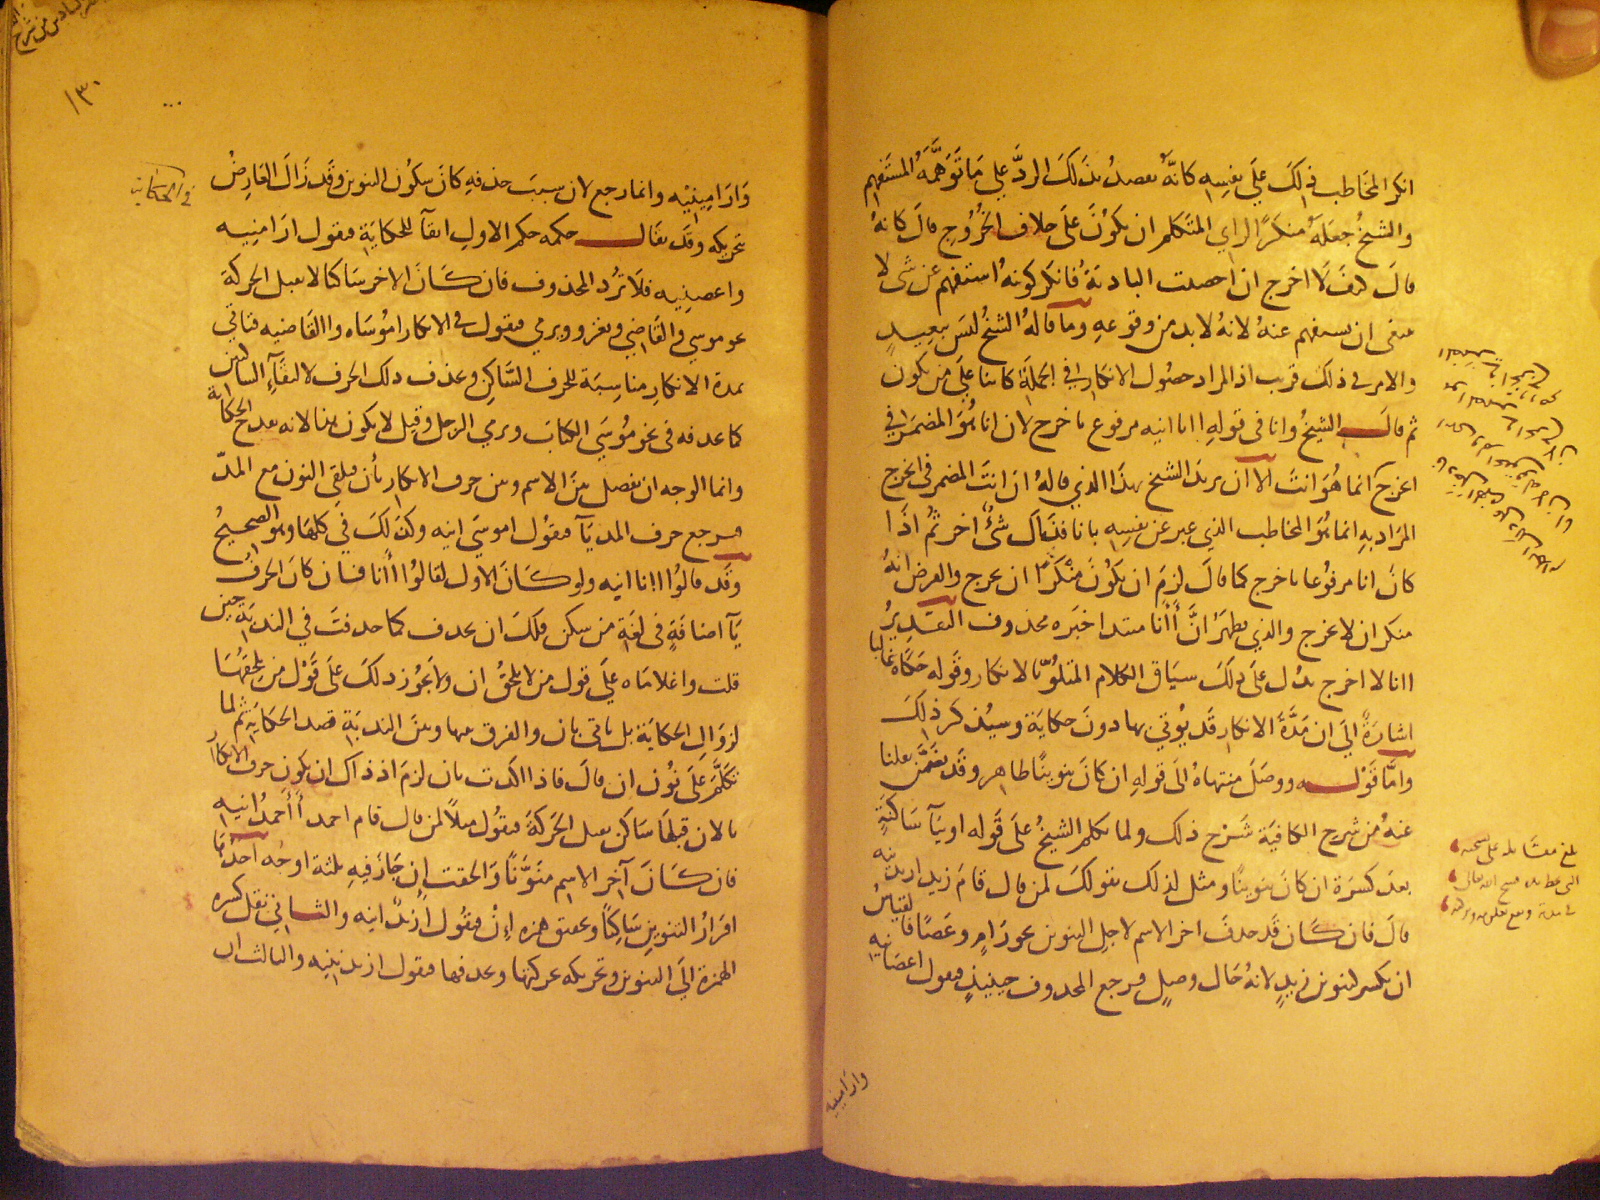 انكر المخاطب ذلك على نفسه كانه يقصد بذلك الرد على ما توهمه المستفهم
والشيخ جعله منكرا لراي المتكلم ان يكون على خلاف الخروج قال كانه
قال كيف لا اخرج ان اخصبت البادية فانكر كونه استفهم عن شى لا
ينبغى ان يستفهم عنه لانه لابد من وقوعه وما قاله الشيخ ليس ببعيد
والامر فى ذلك قريب اذ المراد حصول الانكار فى الجملة كائنا على من يكون
ثم قال الشيخ وانا فى قوله اانا انيه مرفوع باخرج لان انا هو المضمر فى
اخرج انما هو انت الا ان يريد الشيخ بهذا الذي قاله ان انت المضمر فى اخرج
المراد به انما هو المخاطب الذي عبر عن نفسه بانا فذاك شئ اخر ثم اذا
كان انا مرفوعا باخرج كما قال لزم ان يكون منكرا ان يخرج والغرض انه
منكر ان لا يخرج والذي يظهر ان أأنا مبتدا خبره محذوف التقدير
اانا لا اخرج يدل على ذلك سياق الكلام المتلو بالانكار وقوله حكاه غالبا
اشارة الى ان مدة الانكار قد يوتي بها دون حكاية وسيذكر ذلك
واما قوله ووصل منتهاه الى قوله ان كان تنوينا ظاهر وقد تضمن نقلنا
عنه من شرح الكافية شرح ذلك ولما تكلم الشيخ على قوله او ياء ساكنة
بعد كسرة ان كان تنوينا ومثل لذلك بقولك لمن قال قام زيد ازيدنيه
قال فان كان قد حذف اخر الاسم لاجل التنوين نحو رام وعصا فالقياس
ان تكسر لتنوين زيد لانه حال وصل فيرجع المحذوف حينئذ فيقول اعصانيه
وارامينيه
بلغ مقابلة على نسخته
التى بخطه فسح الله تعالى
فى مدته ونفع بعلومه وبركته
١٣٠
فى الحكاية
وارامينيه وانما رجع لان سبب حذفه كان سكون التنوين وقد زال العارض
بتحريكه وقد يقال حكمه حكم الاول ابقآ للحكاية فيقول ارامنيه
واعصنيه فلا ترد المحذوف فان كان الاخر ساكنا لا يقبل الحركة
نحو موسي والقاضي ويغزو ويرمي فيقول فى الانكار اموساه واالقاضيه فتاتي
بمدة الانكار مناسبة للحرف الساكن ويحذف ذلك الحرف لالتقآء الساكنين
كما حذفه فى نحو موسي الكتاب ويرمي الرجل وقيل لا يكون هنا لانه يقدح الحكاية
وانما الوجه ان تفصل بين الاسم وبين حرف الانكار بأن فيلقى النون مع المد
فيرجع حرف المد يآ فيقول اموسي انيه وكذلك في كلها وهو الصحيح
وقد قالوا اانا انيه ولو كان الاول لقالوا أأنا فان كان الحرف
يآ اضافة فى لغة من سكن فلك ان تحذف كما حذفت في الندبة حين
قلت واغلاماه على قول من لا يلحق ان ولا يجوز ذلك على قول من يلحقها
لزوال الحكاية بل ياتى بان والفرق بينها وبين الندبة قصد الحكاية ثم لما
تكلم على نون ان قال فاذا اكدت بان لزم اذ ذاك ان يكون حرف الانكار
يآ لان قبلها ساكن يقبل الحركة فيقول مثلا لمن قال قام احمد أأحمد انيه
فان كان آخر الاسم منونا والحقت إن جاز فيه ثلثة اوجه احدها
اقرار التنوين ساكنا وتحقيق همزه إن فيقول ازيدن انيه والثاني نقل كسره
الهمزة الى التنوين وتحريكه بحركتها وبحذفها فيقول ازيدننيه والثالث ان